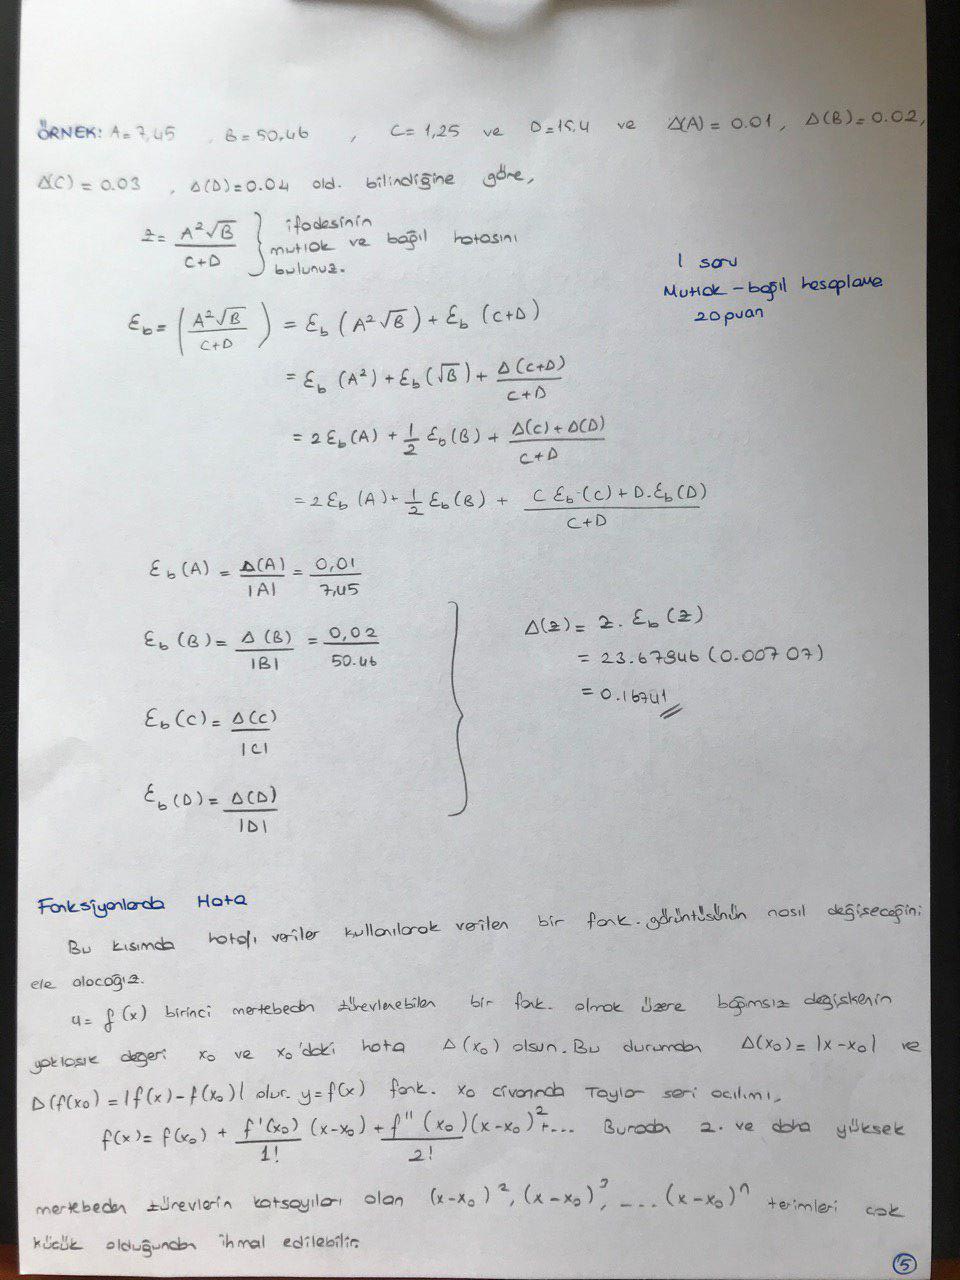 ÖRNEK: A=7,45 , B=50,46 , C=1,25 ve D=15,4 ve Δ(A)=0.01, Δ(B)=0.02,
Δ(C)=0.03 , Δ(D)=0.04 old. bilindiğine göre,
z= A²√B / C+D } ifadesinin mutlak ve bağıl hatasını bulunuz.
1 soru
Mutlak-bağıl hesaplama
20puan
Ɛb=(A²√B / C+D) = Ɛb(A²√B)+Ɛb(C+D)
=Ɛb(A²)+Ɛb(√B)+ Δ(C+D) / C+D
=2Ɛb(A)+1/2 Ɛb(B)+ Δ(C)+Δ(D) / C+D
=2Ɛb(A)+1/2 Ɛb(B)+ C Ɛb.(C)+D.Ɛb(D) / C+D
Ɛb(A) = Δ(A) / |A| = 0,01 / 7,45
Ɛb(B)= Δ(B) / |B| = 0,02 / 50.46
Ɛb(C)= Δ(C) / |C|
Ɛb(D)= Δ(D) / |D|
Δ(z)= z.Ɛb(z)
= 23.67946(0.00707)
= 0.16741
Fonksiyonlarda Hata
Bu kısımda hatalı veriler kullanılarak verilen bir fonk. görüntüsünün nasıl değişeceğini
ele alacağız.
y= f(x) birinci mertebeden türevlenebilen bir fonk. olmak üzere bağımsız değişkenin
yaklaşık değeri x₀ ve x₀'daki hata Δ(x₀) olsun. Bu durumda Δ(x₀)=|x-x₀| ve
Δ(f(x₀)=|f(x)-f(x₀)| olur. y=f(x) fonk. x₀ civarında Taylor seri açılımı,
f(x)= f(x₀) + f'(x₀) / 1! (x-x₀) + f''(x₀) / 2! (x-x₀)²+... Burada 2. ve daha yüksek
mertebeden türevlerin katsayıları olan (x-x₀)², (x-x₀)³, ... (x-x₀)ⁿ terimleri çok
küçük olduğundan ihmal edilebilir.
5